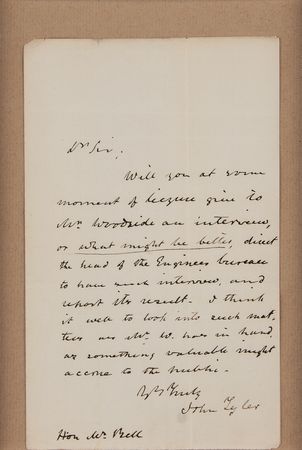 Dr Sir,
Will you at some
moment of leizure give to
Mr. Woodside an interview,
or what might be better, direct
the head of the Engineer bureau
to have such interview, and
report its result. I think
it well to look into such mat-
ters as Mr. W. has in hand,
as something valuable might
accrue to the public.
Yrs Truly
John Tyler
Hon Mr. Bell